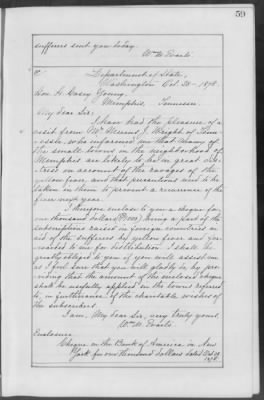 59
sufferers sent you today.
Wm M Evarts.
Department of State,
Washington Oct. 30 - 1878.
Hon. H. Casey Young,
Memphis, Tennessee.
My Dear Sir:
I have had the pleasure of a
visit from Mr. Marcus J. Wright of Tenn-
essee, who informed me that many of
the small towns in the neighborhood of
Memphis are likely to be in great dis-
tress on account of the ravages of the
yellow fever, and that precautions must be
taken in them to prevent a recurrence of the
fever next year.
I therefore enclose to you a cheque for
one thousand dollars ($1,000), being a part of the
subscriptions raised in foreign countries in
aid of the sufferers by yellow fever and for-
warded to me for distribution. I shall be
greatly obliged to you if you will assist me
as I feel sure that you will gladly do, by pro-
viding that the amount of the enclosed cheque
shall be usefully applied in the towns referred
to, in furtherance of the charitable wishes of
the subscribers.
I am, My Dear Sir, very truly yours,
Wm. M. Evarts.
Enclosure
Cheque on the Bank of America in New
York for one thousand dollars dated Oct 29
1878.